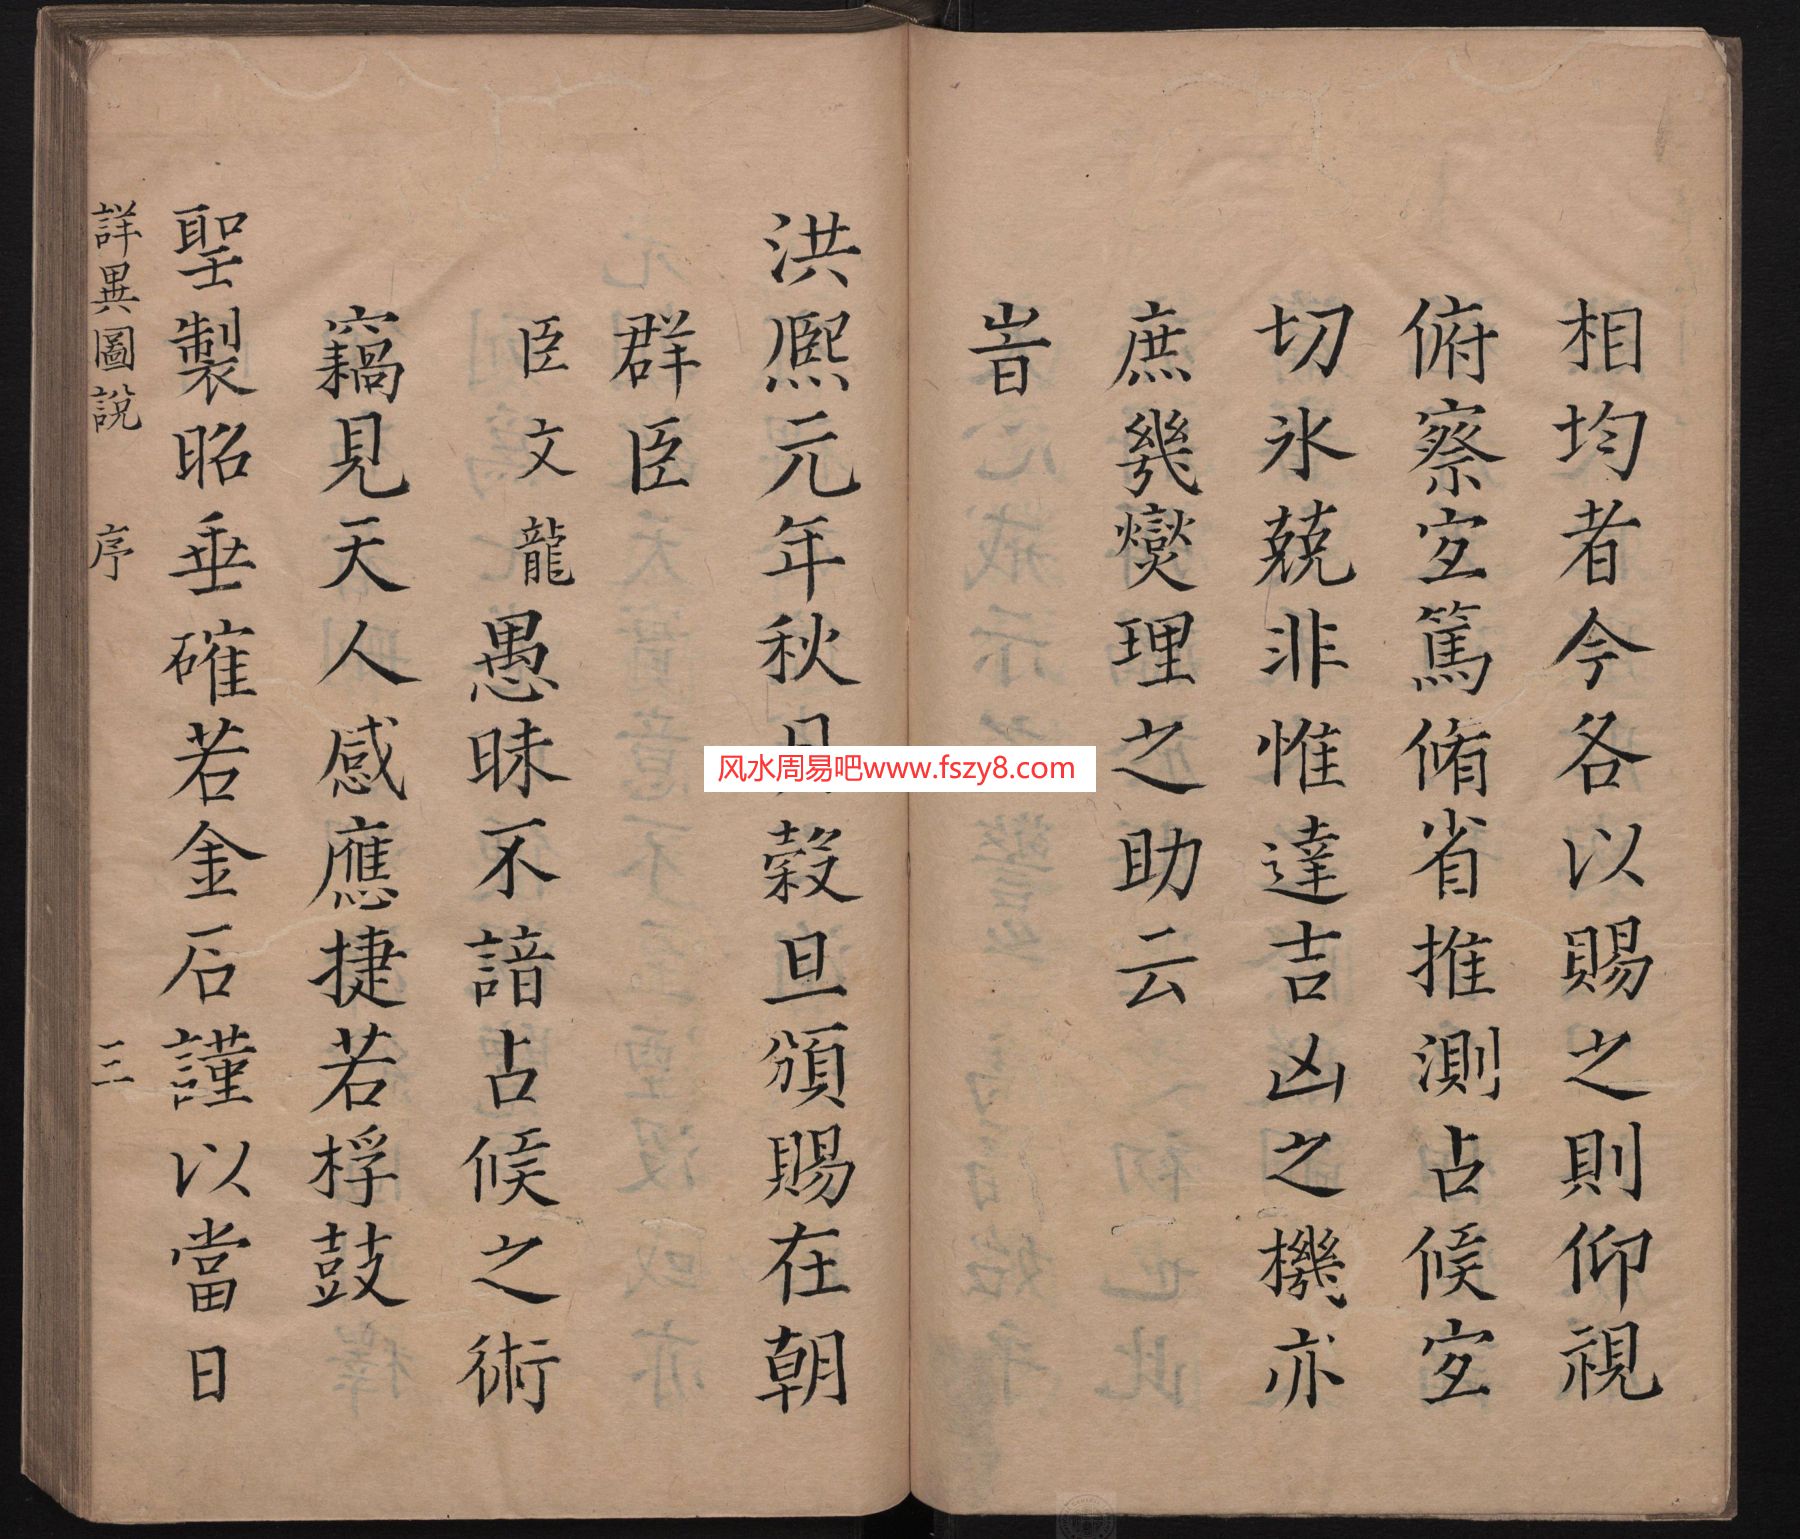 相均者今各以賜之則仰視
俯察宜篤脩省推測占候宜
切氷兢非惟達吉凶之機亦
庶幾燮理之助云
旹
洪熈元年秋月穀旦頒賜在朝
群臣
臣文龍愚昧不諳占候之術
竊見天人感應捷若桴鼓
聖製昭垂確若金石謹以當日
詳異圖說 序 三
风水周易吧www.fszy8.com